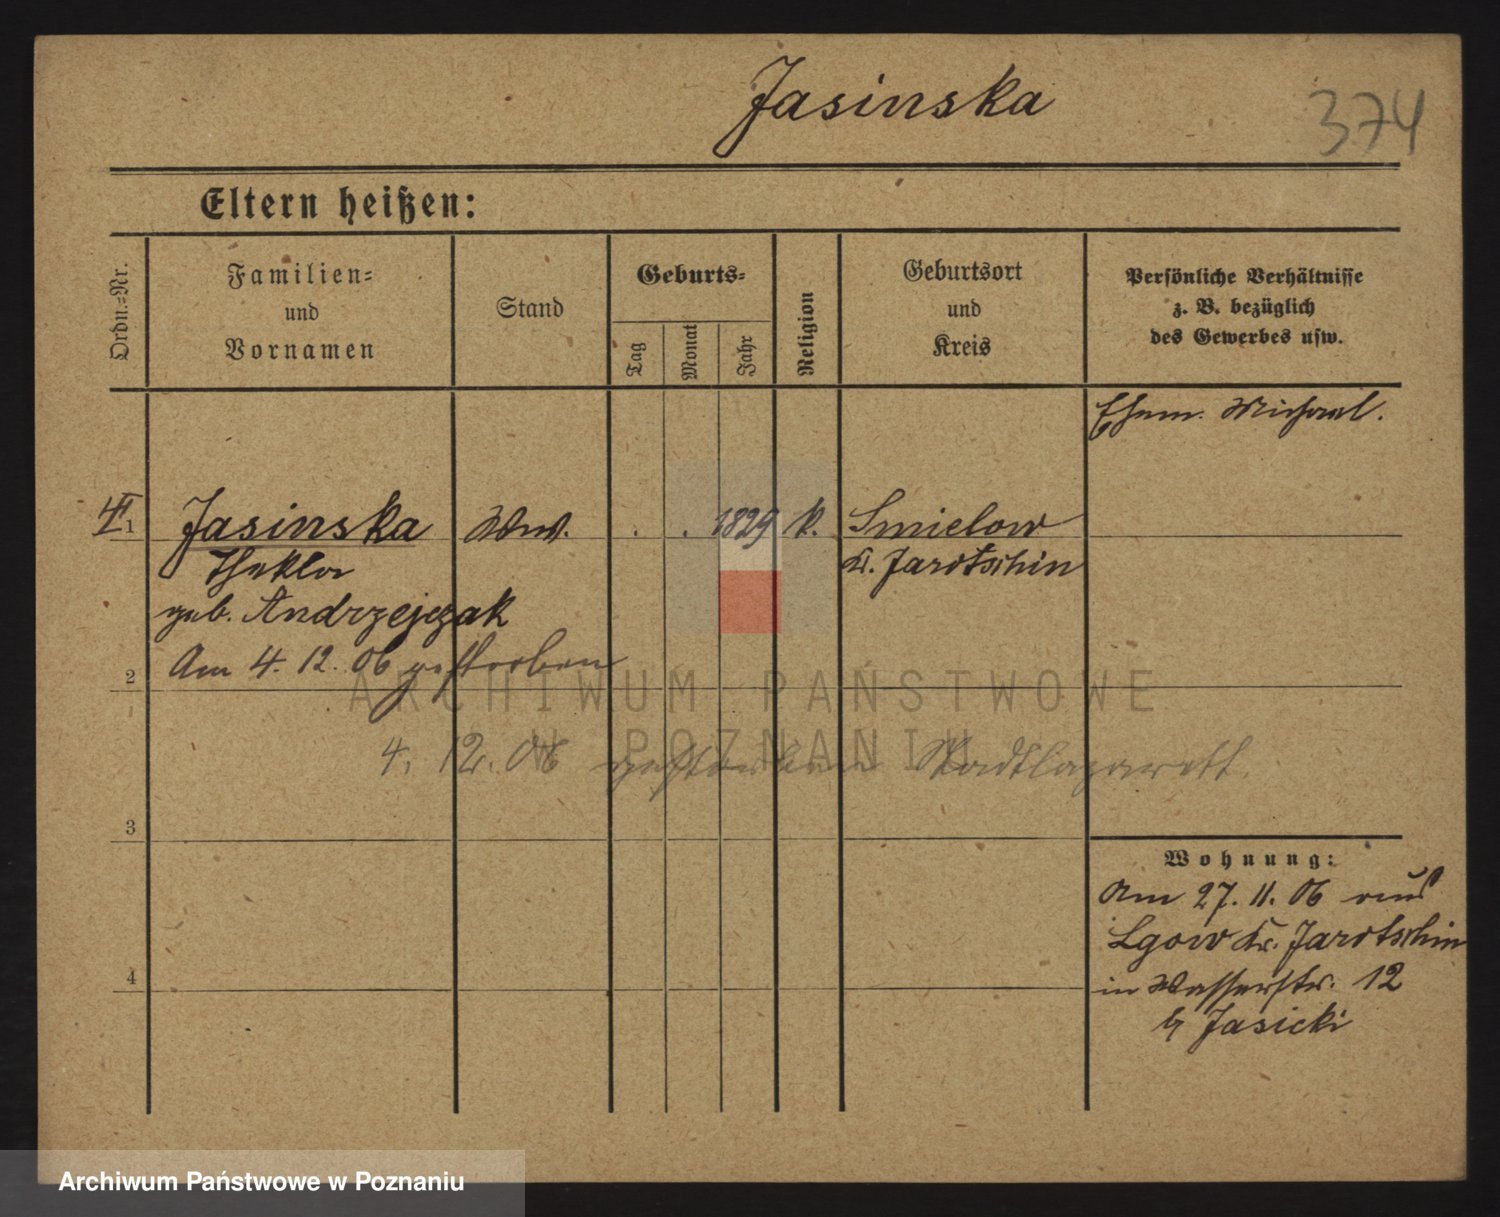 Jasinska
374
Eltern heißen:
Ordn.=Nr.
Familien=
und
Vornamen
Stand
Geburts=
Tag
Monat
Jahr
Religion
Geburtsort
und
Kreis
Persönliche Verhältnisse
z. B. bezüglich
des Gewerbes usw.
Ehem. Michael.
1
Jasinska Ww. . . 1829 k. Smielow
Thekla Kr. Jarotschin
geb. Andrzejczak
Am 4. 12. 06 gestorben
2
ARCHIWUM PAŃSTWOWE
W POZNANIU
4. 12. 06 gestorben Stadtlazarett
3
Wohnung:
Am 27. 11. 06 aus
Lgow Kr. Jarotschin
in Wasserstr. 12
b/ Jasicki
4
Archiwum Państwowe w Poznaniu